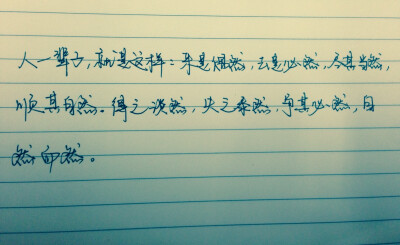 人一辈子，就是这样：来是偶然，去是必然，尽其当然，
顺其自然。得之淡然，失之泰然，争其必然，自
然而然。